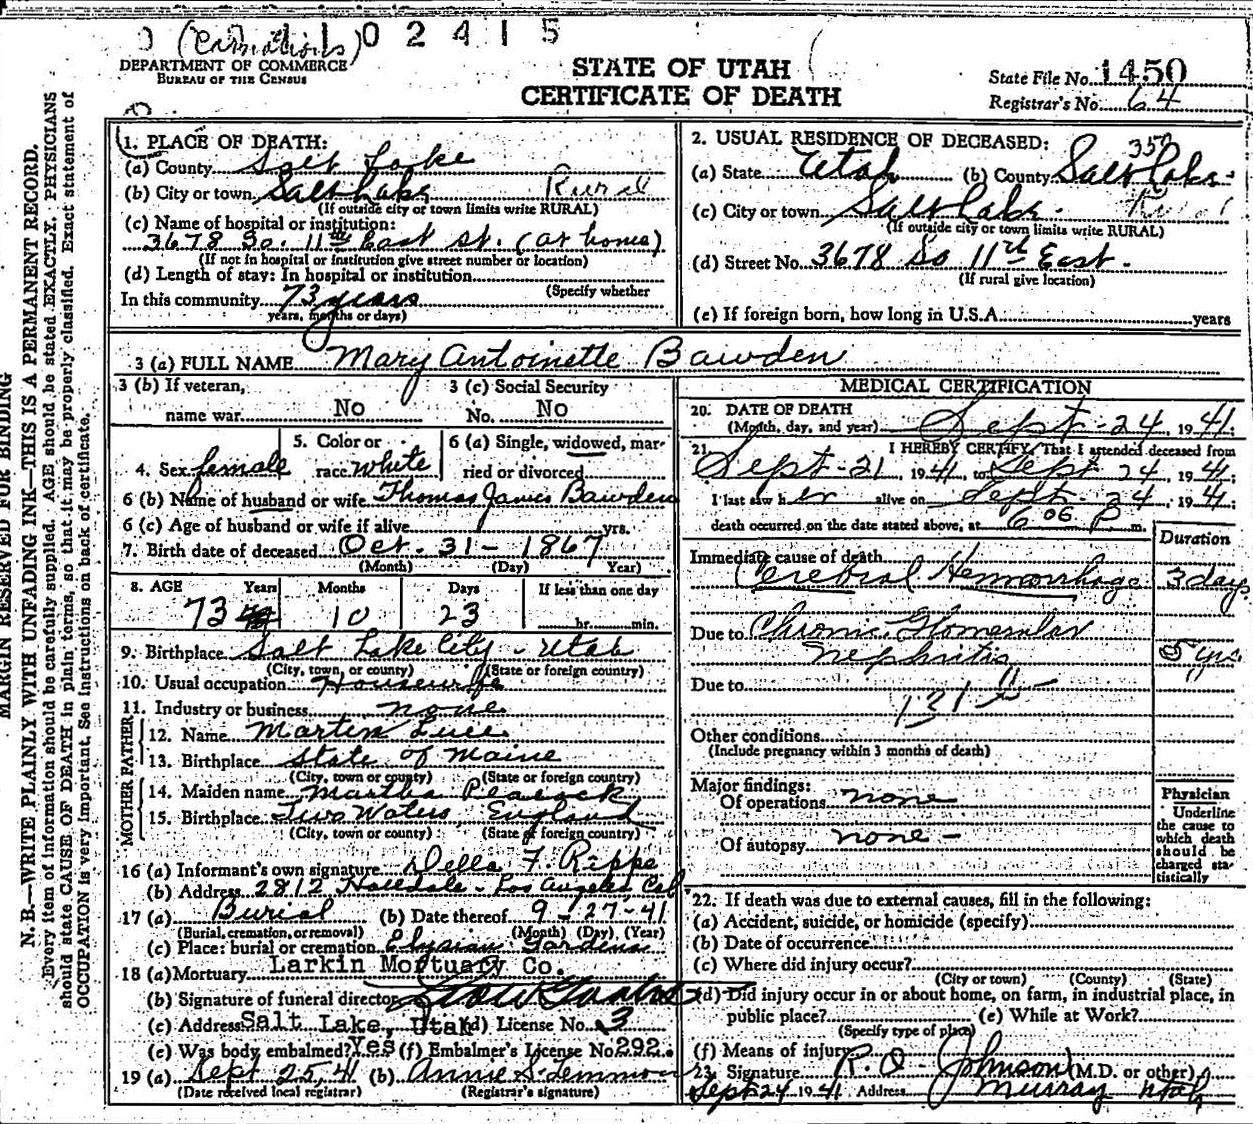 (Carnations) 102415
DEPARTMENT OF COMMERCE
BUREAU OF THE CENSUS
STATE OF UTAH
CERTIFICATE OF DEATH
State File No. 1450
Registrar's No. 64
MARGIN RESERVED FOR BINDING
N. B.—WRITE PLAINLY WITH UNFADING INK—THIS IS A PERMANENT RECORD.
Every item of information should be carefully supplied. AGE should be stated EXACTLY. PHYSICIANS
should state CAUSE OF DEATH in plain terms, so that it may be properly classified. Exact statement of
OCCUPATION is very important. See Instructions on back of certificate.
1. PLACE OF DEATH:
(a) County Salt Lake
(b) City or town Salt Lake Rural
(If outside city or town limits write RURAL)
(c) Name of hospital or institution:
3678 So. 11th East St. (at home)
(If not in hospital or institution give street number or location)
(d) Length of stay: In hospital or institution
(Specify whether
In this community 73 years
years, months or days)
2. USUAL RESIDENCE OF DECEASED:
350
(a) State Utah (b) County Salt Lake
(c) City or town Salt Lake. Rural
(If outside city or town limits write RURAL)
(d) Street No. 3678 So 11th East.
(If rural give location)
(e) If foreign born, how long in U.S.A. years
3 (a) FULL NAME Mary Antoinette Bawden
3 (b) If veteran,
name war No
3 (c) Social Security
No. No
4. Sex female
5. Color or
race white
6 (a) Single, widowed, mar-
ried or divorced
6 (b) Name of husband or wife Thomas James Bawden
6 (c) Age of husband or wife if alive yrs.
7. Birth date of deceased Oct. 31 - 1867
(Month) (Day) Year)
8. AGE Years Months Days If less than one day
73 10 23 hr. min.
9. Birthplace Salt Lake City - Utah
(City, town, or county) (State or foreign country)
10. Usual occupation Housewife
11. Industry or business none
FATHER
12. Name Martin Luce
13. Birthplace State of Maine
(City, town or county) (State or foreign country)
MOTHER
14. Maiden name Martha Peacock
15. Birthplace Two Waters, England
(City, town or county) (State of foreign country)
16 (a) Informant's own signature Della F. Rippe
(b) Address 2812 Halldale - Los Angeles Cal
17 (a) Burial (b) Date thereof 9-27-41
(Burial, cremation, or removal) (Month) (Day) (Year)
(c) Place: burial or cremation Elysian Gardens
18 (a) Mortuary Larkin Mortuary Co.
(b) Signature of funeral director
(c) Address Salt Lake, Utah (d) License No. 3
(e) Was body embalmed? Yes (f) Embalmer's License No. 292.
19 (a) Sept 25, 41 (b) Annie S. Lemmon
(Date received local registrar) (Registrar's signature)
MEDICAL CERTIFICATION
20. DATE OF DEATH
(Month, day, and year) Sept - 24, 1941;
21. I HEREBY CERTIFY, That I attended deceased from
Sept - 21, 1941, to Sept 24, 1941;
I last saw her alive on Sept - 24, 1941;
death occurred on the date stated above, at 6 06 P m.
Duration
Immediate cause of death
Cerebral Hemorrhage 3 days
Due to Chronic Glomerular
nephritis 5 yrs.
Due to
131
Other conditions
(Include pregnancy within 3 months of death)
Major findings:
Of operations none
Of autopsy none -
Physician
Underline
the cause to
which death
should be
charged sta-
tistically
22. If death was due to external causes, fill in the following:
(a) Accident, suicide, or homicide (specify)
(b) Date of occurrence
(c) Where did injury occur?
(City or town) (County) (State)
(d) Did injury occur in or about home, on farm, in industrial place, in
public place? (e) While at Work?
(Specify type of place)
(f) Means of injury
23. Signature R. O. Johnson (M.D. or other)
Sept 24 1941 Address Murray Utah